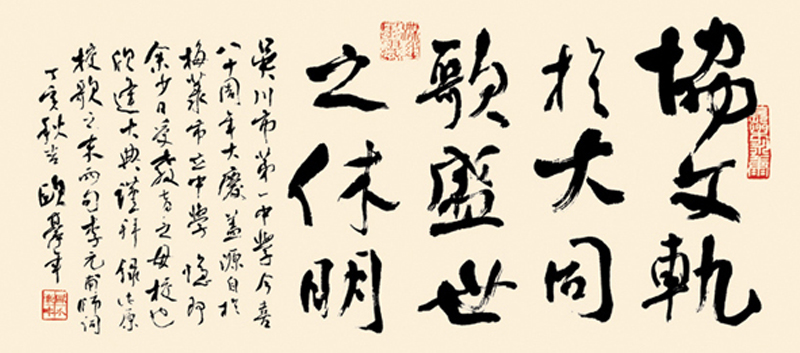 協文軌
於大同
歌盛世
之休明
吳川市第一中學今喜
八十周年大慶蓋源自於
梅菉市立中學
余少日受教育之母校也
欣逢大典謹拜錄原
校歌之末兩句李元甫師詞
丁亥秋吉歐豪年